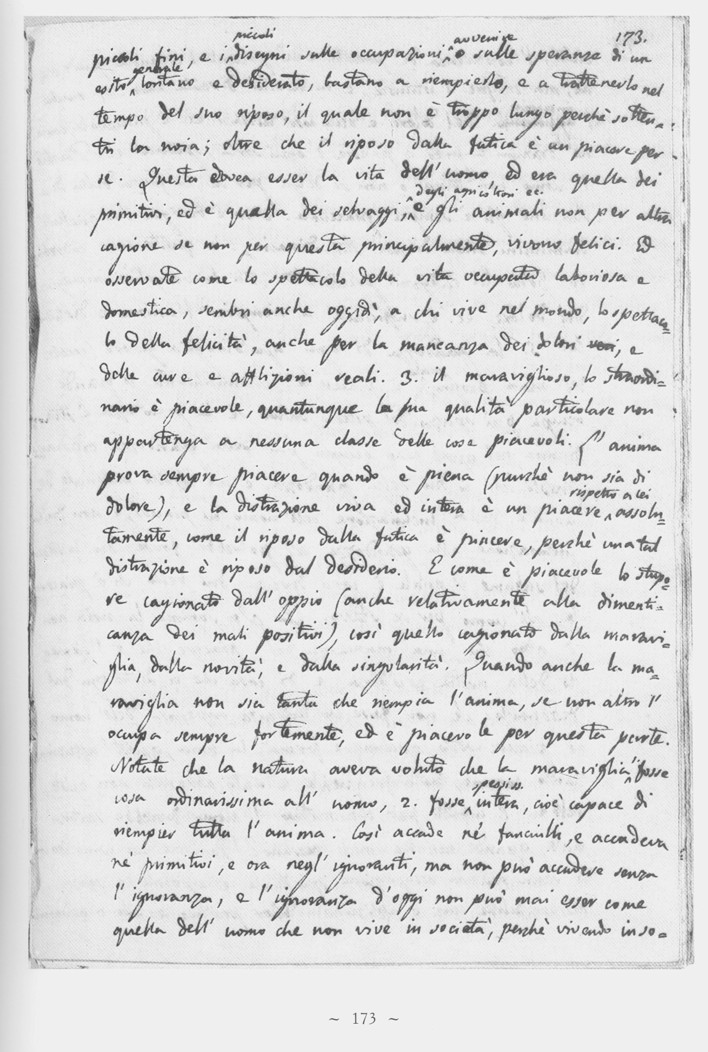 173.
piccoli fini, e i piccoli disegni sulle occupazioni avvenire o sulle speranze di un
esito generale lontano e desiderato, bastano a riempierlo, e a trattenerlo nel
tempo del suo riposo, il quale non è troppo lungo perchè sotten-
tri la noia; oltre che il riposo dalla fatica è un piacere per
se. Questa dovea esser la vita dell'uomo ed era quella dei
primitivi, ed è quella dei selvaggi, degli agricoltori ec. e gli animali non per altra
cagione se non per questa principalmente, vivono felici. Ed
osservate come lo spettacolo della vita occupata laboriosa e
domestica, sembri anche oggidì, a chi vive nel mondo, lo spettaco-
lo della felicità, anche per la mancanza dei dolori veri, e
delle cure e afflizioni reali. 3. il maraviglioso, lo straordi-
nario è piacevole, quantunque la sua qualità particolare non
appartenga a nessuna classe delle cose piacevoli. L'anima
prova sempre piacere quando è piena (purchè non sia di
dolore), e la distrazione viva ed intera è un piacere rispetto a lei assolu-
tamente, come il riposo dalla fatica è piacere, perchè una tal
distrazione è riposo dal desiderio. E come è piacevole lo stupo-
re cagionato dall'oppio (anche relativamente alla dimenti-
canza dei mali positivi), così quello cagionato dalla maravi-
glia, dalla novità, e dalla singolarità. Quando anche la ma-
raviglia non sia tanta che riempia l'anima, se non altro l'
occupa sempre fortemente, ed è piacevole per questa parte.
Notate che la natura aveva voluto che la maraviglia 1. fosse
cosa ordinarissima all'uomo, 2. fosse spessiss. intera, cioè capace di
riempier tutta l'anima. Così accade ne' fanciulli, e accadeva
ne' primitivi, e ora negl'ignoranti, ma non può accadere senza
l'ignoranza, e l'ignoranza d'oggi non può mai esser come
quella dell'uomo che non vive in società, perchè vivendo in so-
~ 173 ~